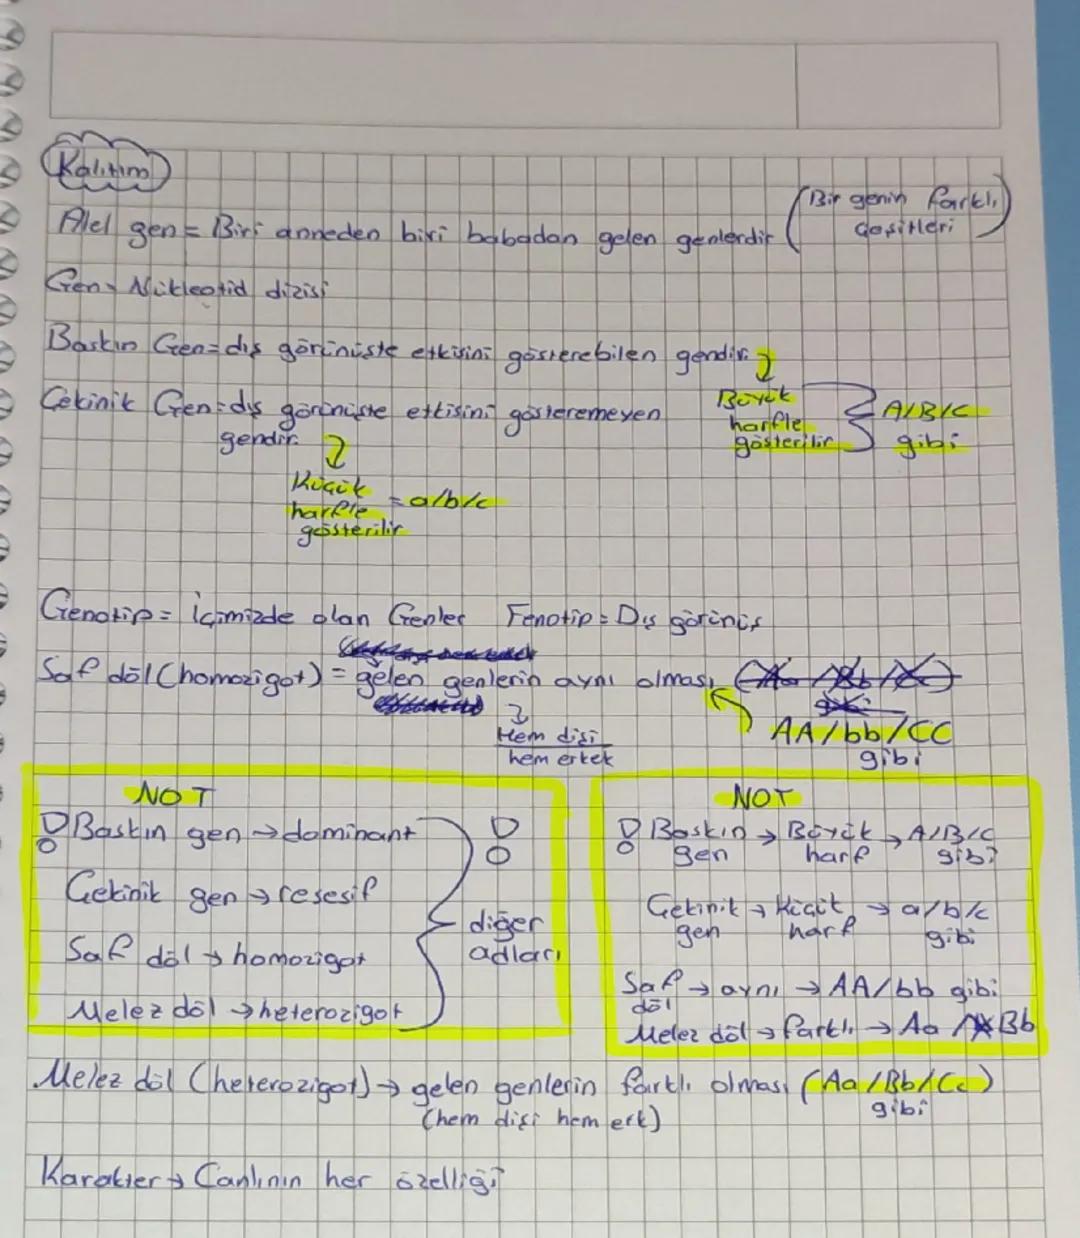 Kalıtım
Alel gen = Biri anneden biri babadan gelen genlerdir (Bir genin farklı çeşitleri)
Gen → Nükleotid dizisi
Baskın Gen = dış görünüşte etkisini gösterebilen gendir.
Büyük harfle gösterilir
A/B/C gibi
Çekinik Gen = dış görünüşte etkisini gösteremeyen
gendir.
Küçük harfle gösterilir = a/b/c
Genotip = İçimizde olan Genler Fenotip = Dış görünüş
Saf döl (homozigot) = gelen genlerin aynı olması
Hem dişi
hem erkek
AA/bb/CC
gibi
NOT
! Baskın gen → dominant
Çekinik gen → resesif
Saf döl → homozigot
Melez döl → heterozigot
!
diğer
adları
NOT
! Baskın gen → Büyük harf → A/B/C gibi
Çekinik gen → Küçük harf → a/b/c gibi
Saf döl → aynı → AA/bb gibi
Melez döl → farklı → Aa / Bb
Melez döl (heterozigot) → gelen genlerin farklı olması (Aa/Bb/Cc)
(hem dişi hem erk) gibi
Karakter → Canlının her özelliği